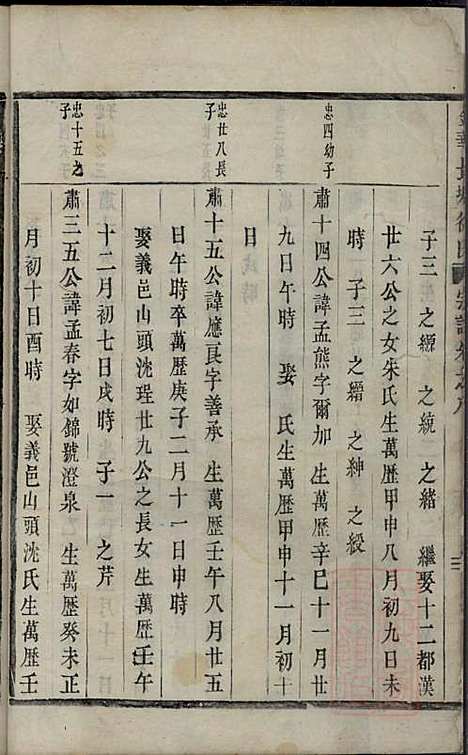 子三 之縉 之統 之緒 繼娶十二都漢
廿六公之女朱氏生萬歷甲申八月初九日未
時 子三 之縉 之紳 之綬
忠四幼子
肅十四公諱孟熊字爾加 生萬歷辛巳十一月廿
九日午時 娶 氏生萬歷甲申十一月初十
日
忠廿八長子
肅十五公諱應良字善承 生萬歷壬午八月廿五
日午時卒萬歷庚子二月十一日申時
娶義邑山頭沈珵廿九公之長女生萬歷壬午
十二月初七日戌時 子一 之芹
忠十五之子
肅三五公諱孟春字如錦號澄泉 生萬歷癸未正
月初十日酉時 娶義邑山頭沈氏生萬歷壬